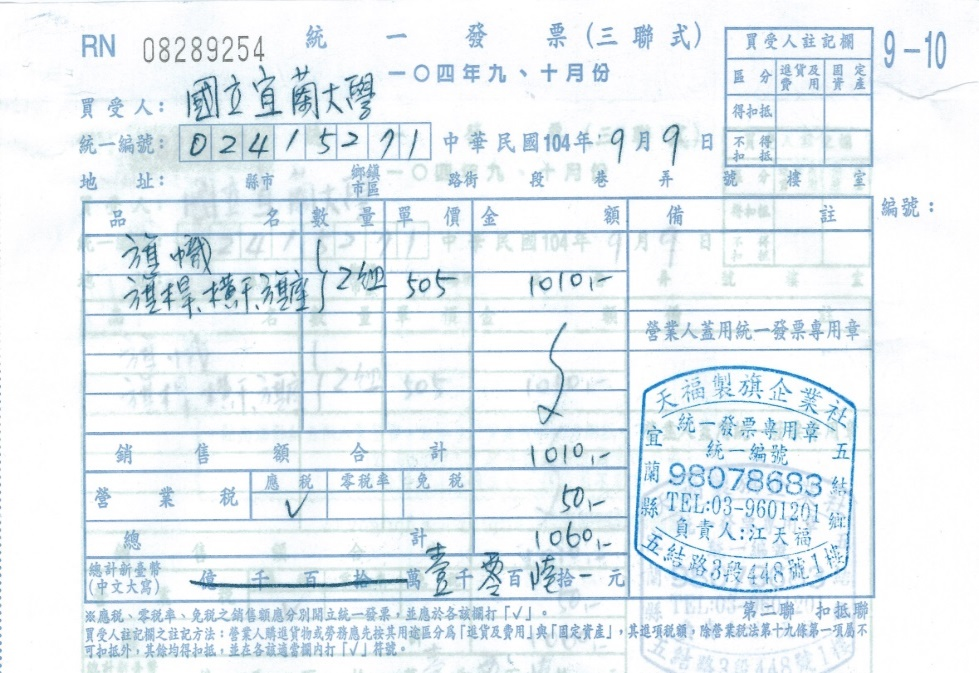 RN 08289254 統一發票(三聯式) 9-10
一〇四年九、十月份
買受人註記欄
區分 進貨及費用 固定資產
得扣抵
不得扣抵
買受人: 國立宜蘭大學
統一編號: 02415271 中華民國104年9月9日
地址: 縣市 鄉鎮市區 路街 段 巷 弄 號 樓 室
品名 數量 單價 金額 備註 編號:
旗幟
旗桿、橫干、旗座 2組 505 1010,-
營業人蓋用統一發票專用章
銷售額合計 1010,-
營業稅 應稅 零稅率 免稅 50,-
√
總計 1060,-
總計新臺幣(中文大寫) 億千百拾萬壹千零百陸拾-元
天福製旗企業社
統一發票專用章
統一編號
98078683
TEL:03-9601201
負責人:江天福
宜蘭縣五結鄉五結路3段448號1樓
※應稅、零稅率、免稅之銷售額應分別開立統一發票,並應於各該欄打「√」。
第二聯 扣抵聯
買受人註記欄之註記方法:營業人購進貨物或勞務應先按其用途區分為「進貨及費用」與「固定資產」,其進項稅額,除營業稅法第十九條第一項屬不
可扣抵外,其餘均得扣抵,並在各該適當欄內打「√」符號。